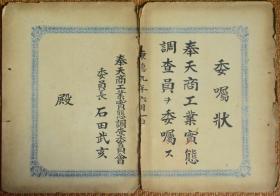 委囑狀
奉天商工業實態
調査員ヲ委囑ス
康德九年六月一日
奉天商工業實態調査委員會
委員長 石田武亥
殿